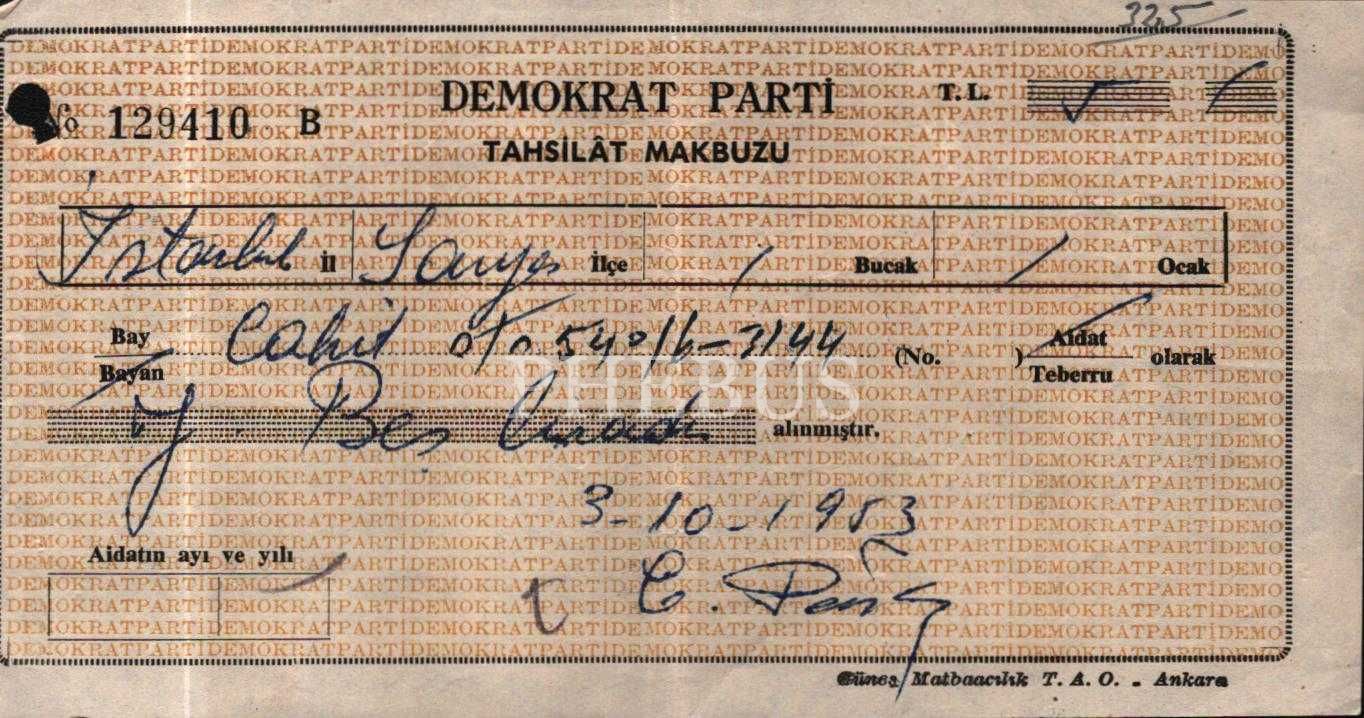 325
DEMOKRAT PARTİ
T. L. 5 /
No 129410 B
TAHSİLÂT MAKBUZU
İstanbul İl Ilçe / Bucak / Ocak
Bay Cahit (No. ) Aidat olarak
Bayan Teberru
Y. Beş liradır alınmıştır.
3-10-1953
Aidatın ayı ve yılı
PHEBUS
Güneş Matbaacılık T. A. O. - Ankara